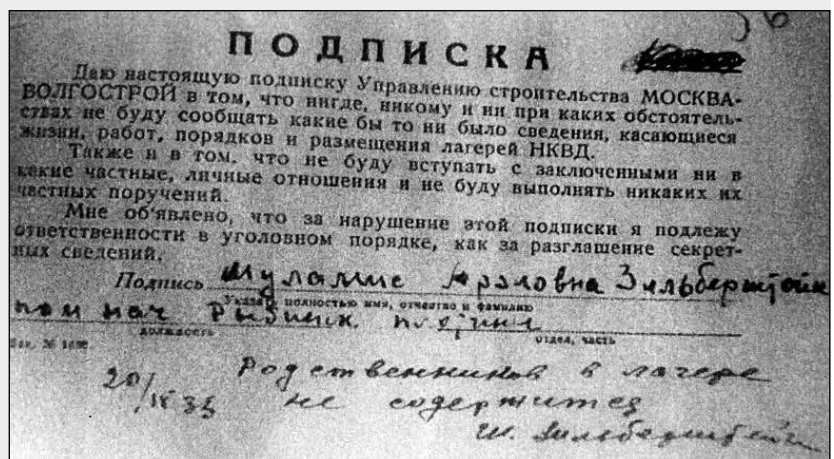 36
ПОДПИСКА
Даю настоящую подписку Управлению строительства МОСКВА-
ВОЛГОСТРОЙ в том, что нигде, никому и ни при каких обстоятель-
ствах не буду сообщать какие бы то ни было сведения, касающиеся
жизни, работ, порядков и размещения лагерей НКВД.
Также и в том. что не буду вступать с заключенными ни в
какие частные, личные отношения и не буду выполнять никаких их
частных поручений.
Мне об'явлено, что за нарушение этой подписки я подлежу
ответственности в уголовном порядке, как за разглашение секрет-
ных сведений.
Подпись Шуламис Зильберштейн
Указать полностью имя, отчество и фамилию
пом нач Рыбинск.
должность отдел, часть
Родственников в лагере
20/IX 35 не содержится
Ш. Зильберштейн